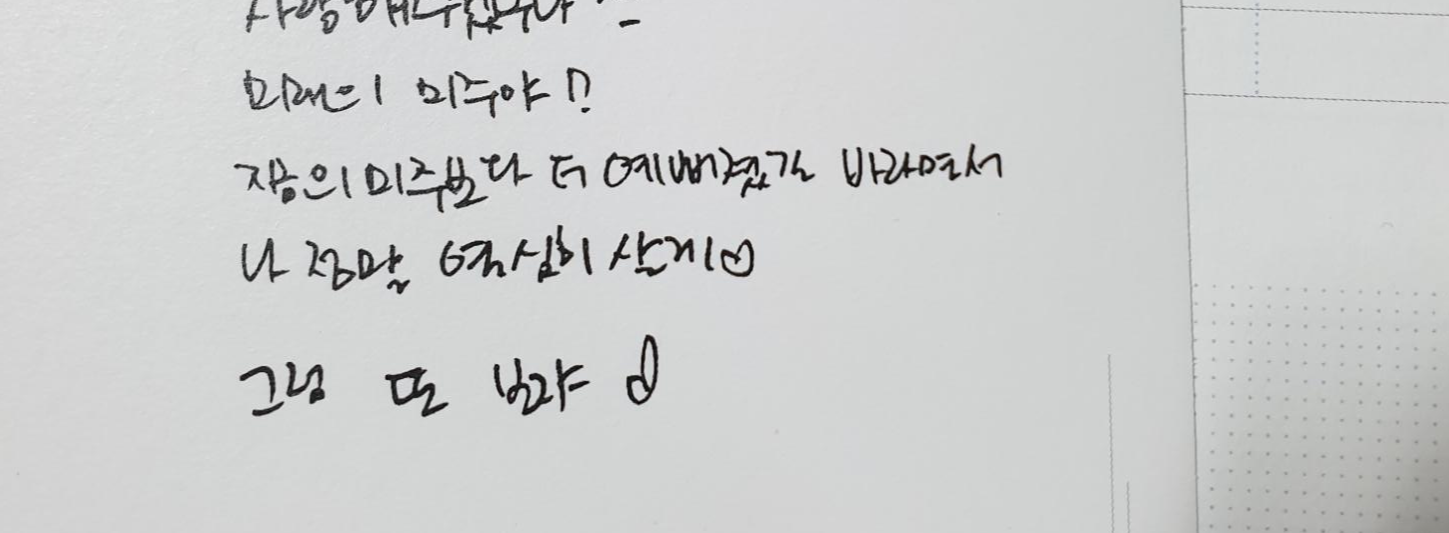 미래의 미주야!?
지금의 미주보다 더 예뻐졌길 바라면서
나 정말 열심히 살게
그럼 또 보자